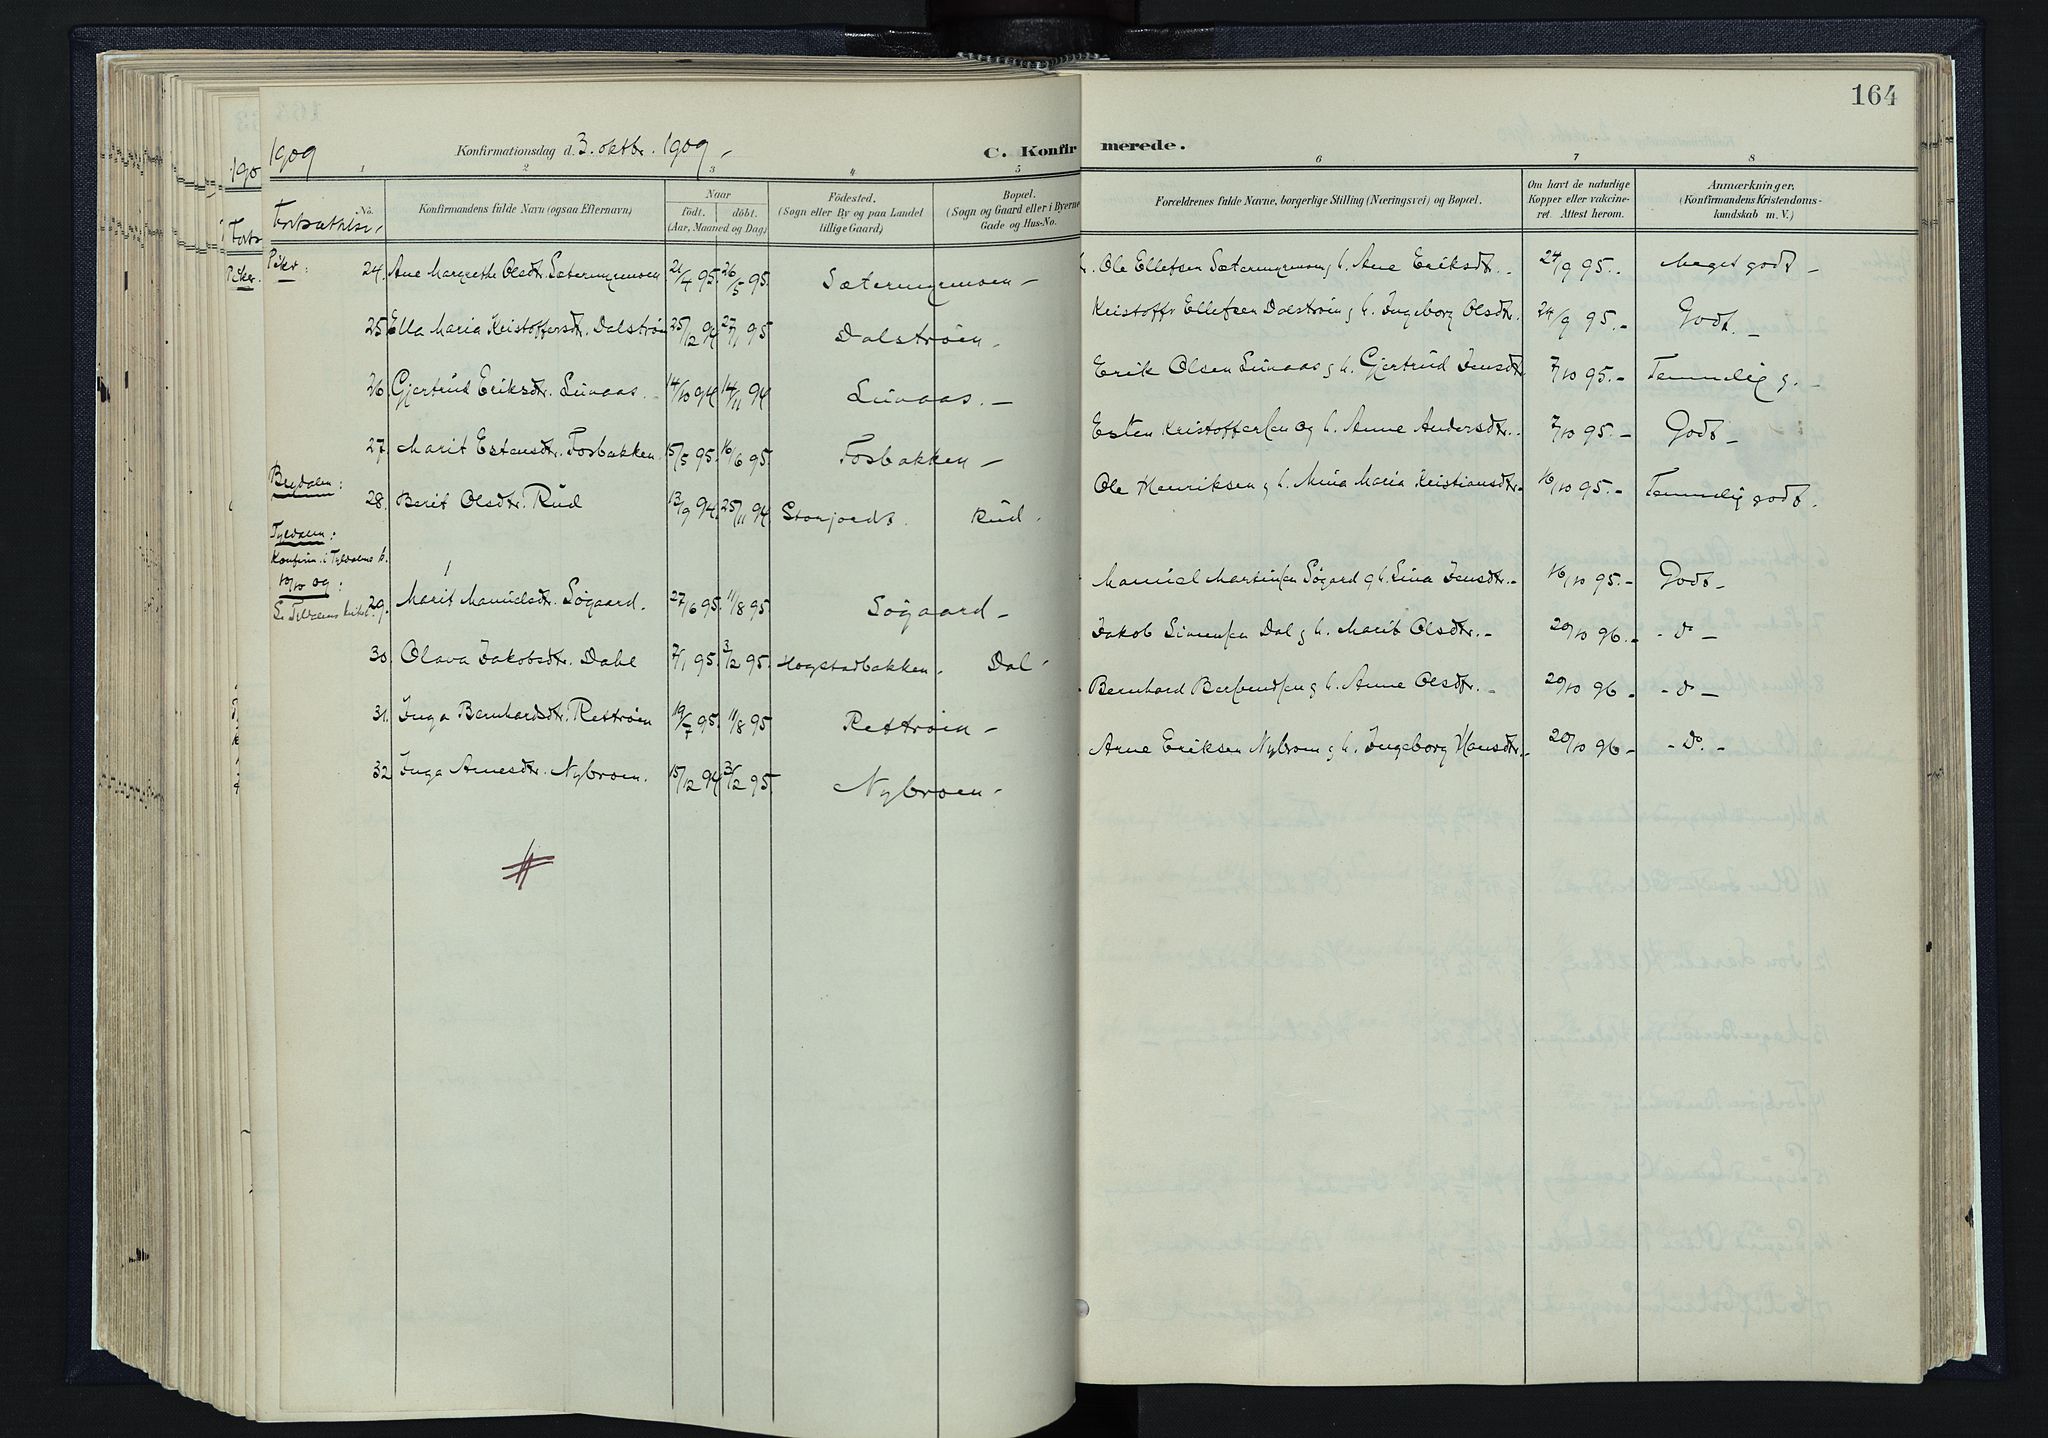 164
1909 Konfirmationsdag d. 3. oktbr. 1909. C. Konfirmerede.
1 2 3 4 5 6 7 8
No. Konfirmandens fulde Navn (ogsaa Efternavn) Naar födt. döbt. (Aar, Maaned og Dag) Födested. (Sogn eller By og paa Landet tillige Gaard) Bopæl. (Sogn og Gaard eller i Byerne Gade og Hus-No. Forældrenes fulde Navne, borgerlige Stilling (Næringsvei) og Bopæl. Om havt de naturlige Kopper eller vaccineret. Attest herom. Anmærkninger. (Konfirmandens Kristendomskundskab m. V.)
Fortsættelse.
Piker:
24. Ane Margrethe Olsdtr. Sæterengmoen 21/4 95. 26/5 95. Sæterengmoen - Ole Ellefsen Sæterengmoen g h. Ane Eriksdtr. - 24/9 95. - Meget godt -
25. Ella Maria Kristoffersdtr. Dalstrøen 25/12 94 27/1 95 Dalstrøen - Kristoffr Ellefsen Dalstrøen g h. Ingeborg Olsdtr. 24/9 95. - Godt. -
26. Gjertrud Eriksdtr. Lunaas. 14/10 94 14/11 94 Lunaas. - Erik Olsen Lunaas g h. Gjertrud Jensdtr. 7/10 95. - Temmelig g. -
27. Marit Estensdtr. Fosbakken 15/5 95. 16/6 95. Fosbakken - Esten Kristoffersen og h. Anne Andersdtr. 7/10 95. - Godt -
28. Berit Olsdtr. Rud 13/9 94. 25/11 94 Rud. Ole Henriksen g h. Mina Maria Kristiansdtr. 16/10 95. - Temmelig godt.
Tyldalen:
Konfirm. i Tyldalens k.
10/10 09:
29. Marit Manuelsdtr. Søgaard. 27/6 95. 11/8 95 Søgaard - Manuel Martinsen Søgard g h. Lina Jensdtr. - 16/10 95. - Godt -
30. Olava Jakobsdtr. Dahl 7/1 95. 3/2 95. Hogstadbakken. Dal - Jakob Simensen Dal g h. Marit Olsdtr. - 20/10 96. - - do -
31. Inga Bernhardsdtr. Røstrøen 19/7 95. 11/8 95 Røstrøen - Bernhard Bersvendsen g h. Anne Olsdtr. - 20/10 96 - - do -
32 Inga Arnesdtr. Nybroen. 15/12 94 3/2 95 Nybroen - Arne Eriksen Nybroen g h. Ingeborg Hansdtr. - 20/10 96 - - Do. -